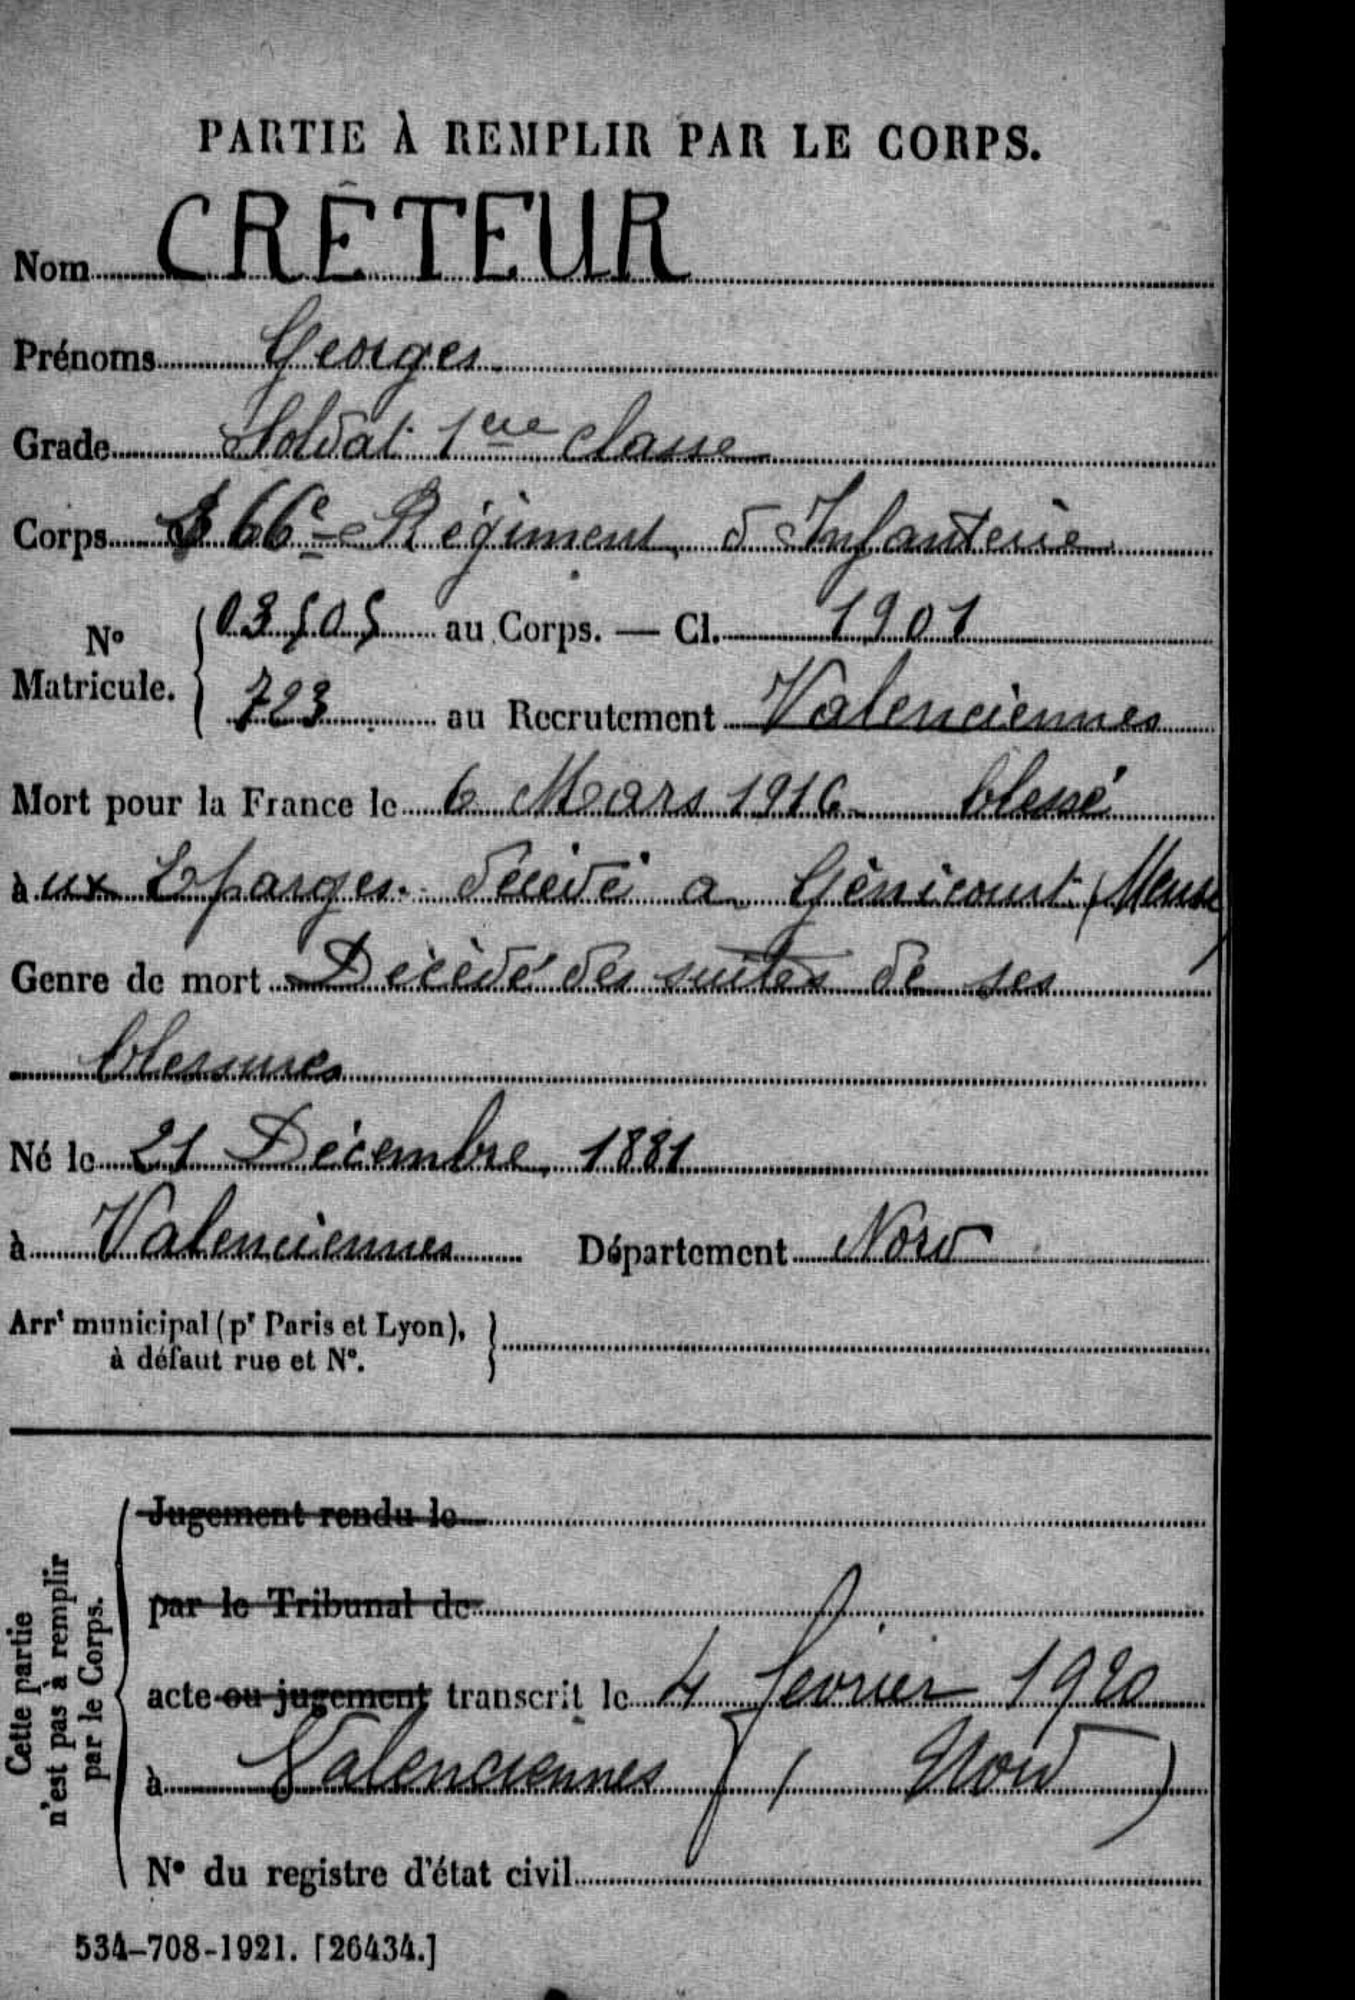 PARTIE À REMPLIR PAR LE CORPS.
Nom CRÊTEUR
Prénoms Georges
Grade Soldat 1ère classe
Corps 366e Régiment d'Infanterie
N° Matricule. { 03505 au Corps. — Cl. 1901
723 au Recrutement Valenciennes
Mort pour la France le 6 Mars 1916 blessé
à ux Eparges. décédé a Génicourt (Meuse)
Genre de mort Décédé des suites de ses
blessures
Né le 21 Décembre 1881
à Valenciennes Département Nord
Arrt municipal (pr Paris et Lyon), à défaut rue et N°. }
Cette partie n'est pas à remplir par le Corps.
Jugement rendu le
par le Tribunal de
acte ou jugement transcrit le 4 février 1920
à Valenciennes (Nord)
N° du registre d'état civil
534-708-1921. [26434.]